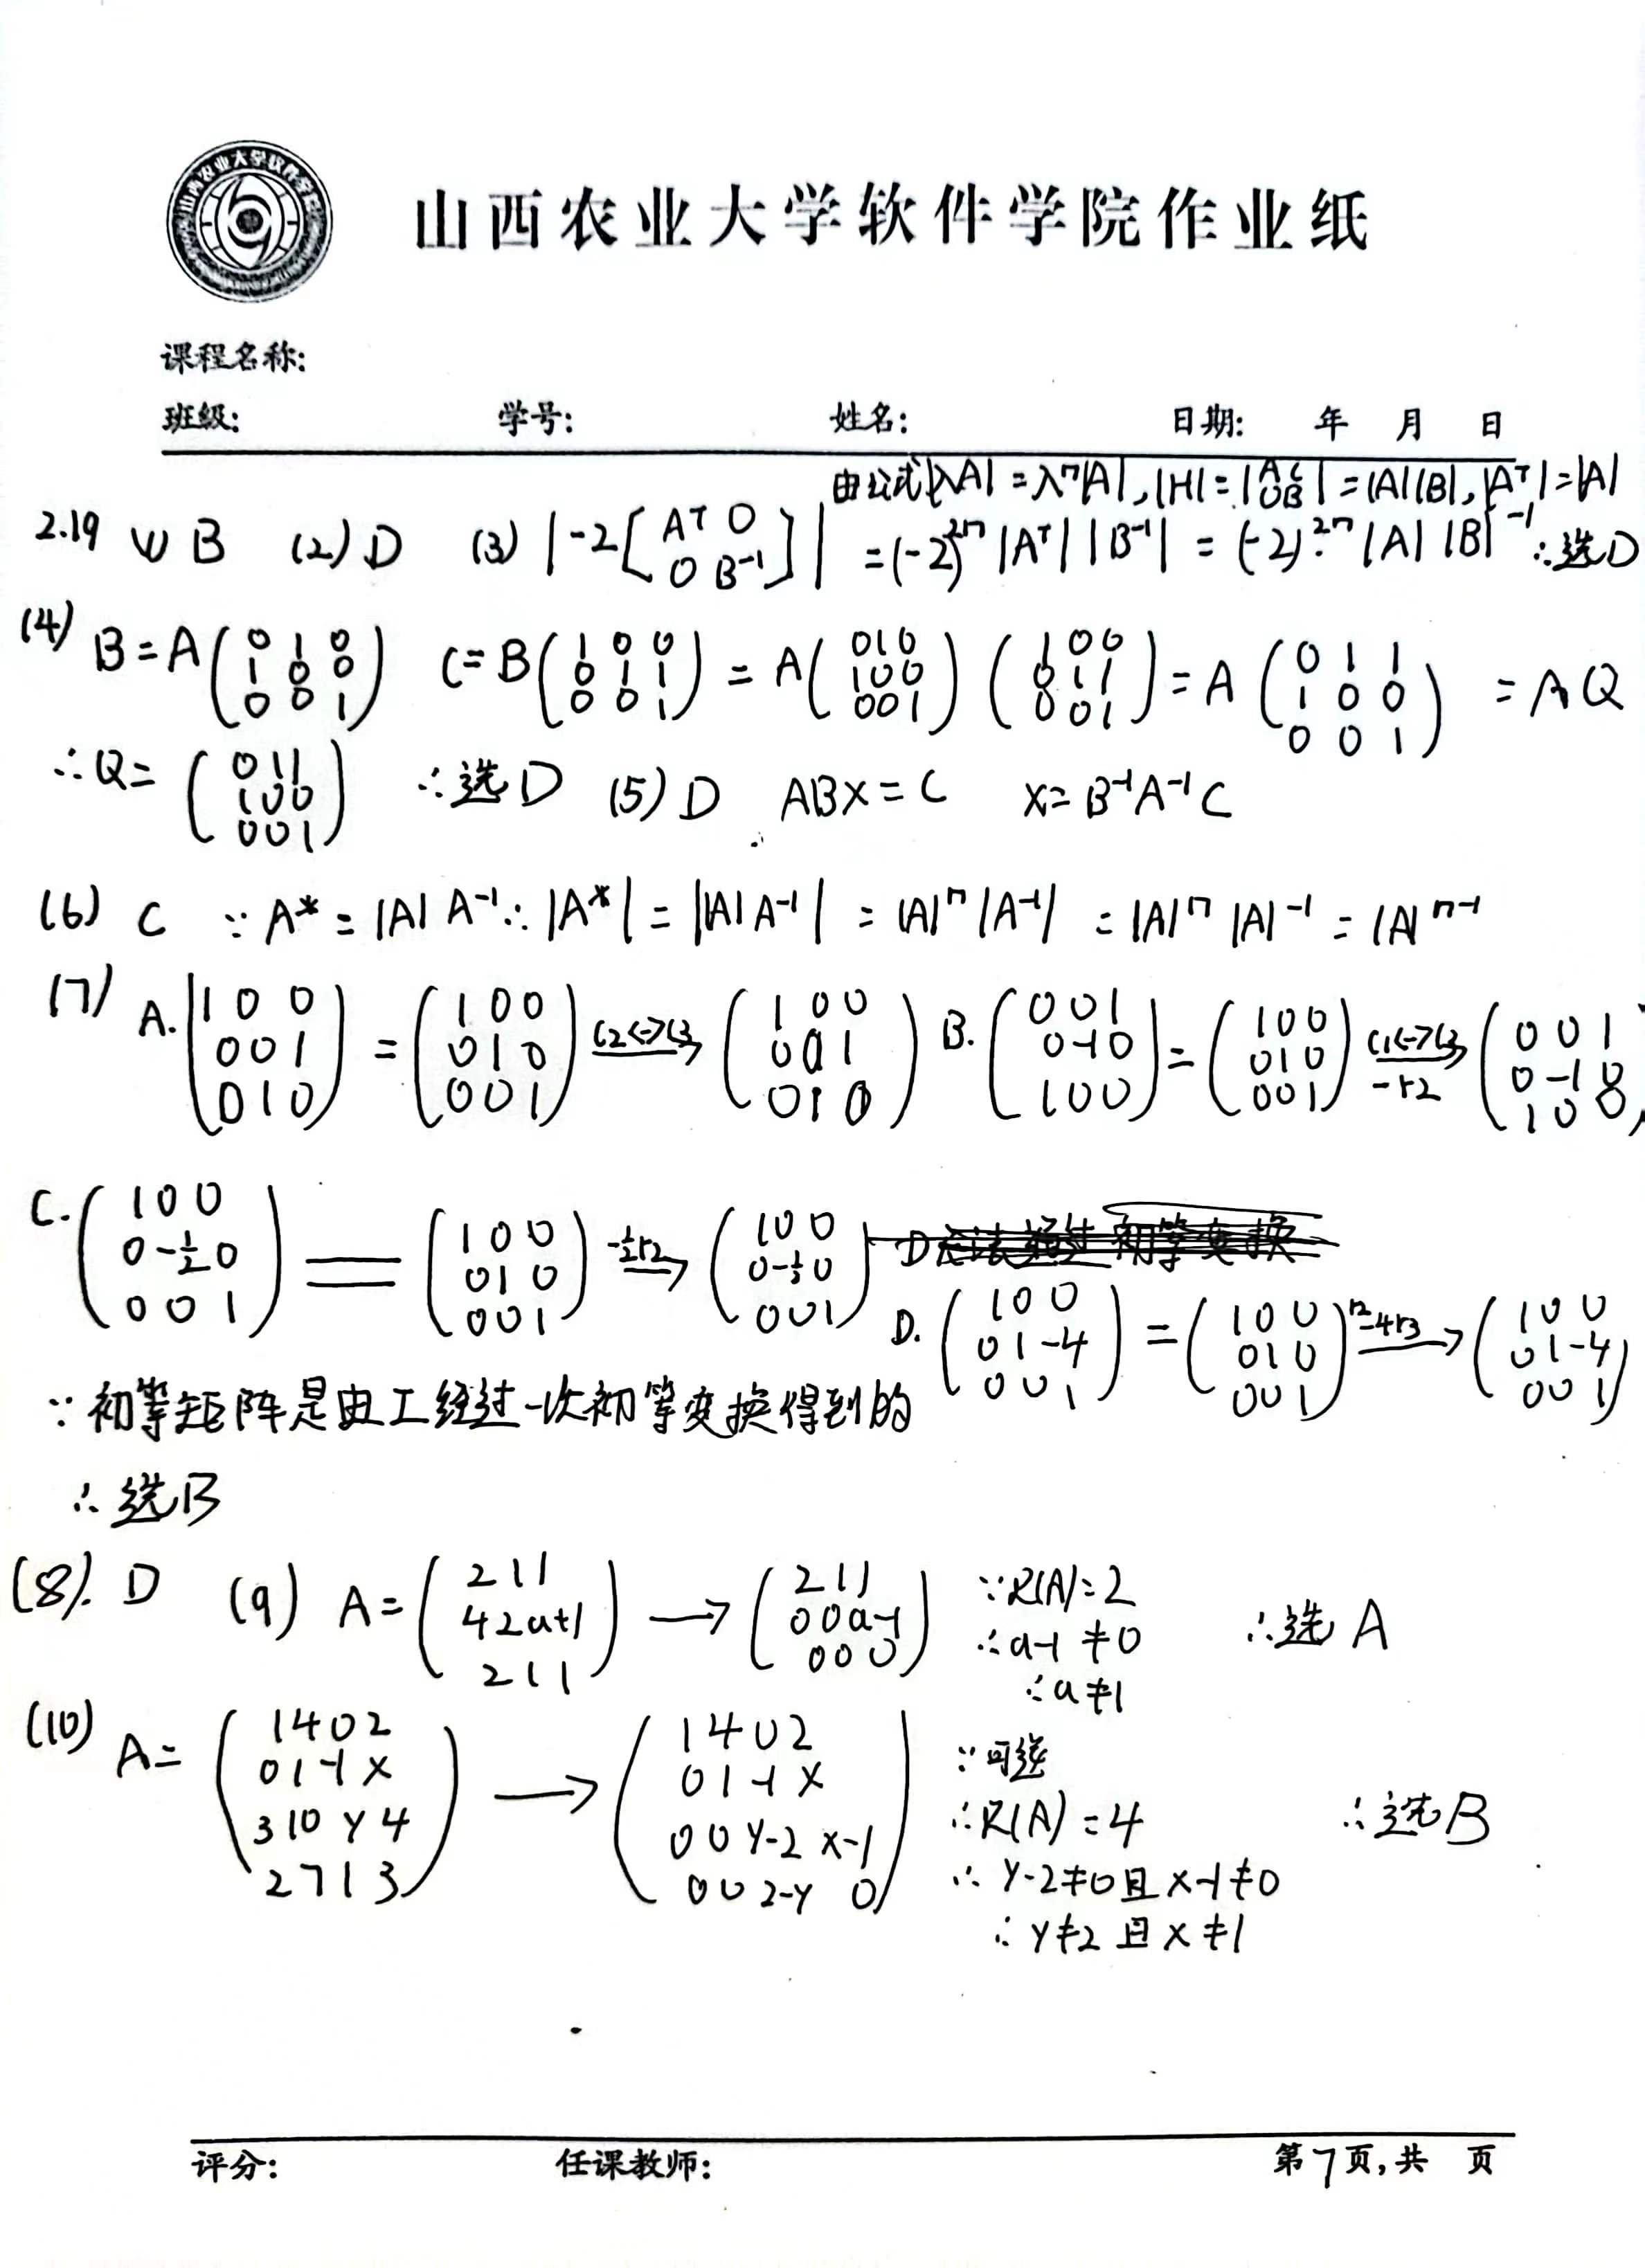 山西农业大学软件学院
山西农业大学软件学院作业纸
课程名称:
班级: 学号: 姓名: 日期: 年 月 日
由公式|λA|=λⁿ|A|, |H|=|A C
O B|=|A||B|, |Aᵀ|=|A|
2.19 (1) B (2) D (3) |-2[Aᵀ O
O B⁻¹]| =(-2)²ⁿ|Aᵀ||B⁻¹| = (-2)²ⁿ|A||B|⁻¹ ∴选D
(4) B=A(0 1 0
1 0 0
0 0 1) C=B(1 0 0
0 1 1
0 0 1) = A(0 1 0
1 0 0
0 0 1)(1 0 0
0 1 1
0 0 1) = A(0 1 1
1 0 0
0 0 1) = AQ
∴Q= (0 1 1
1 0 0
0 0 1) ∴选D (5) D ABX=C X=B⁻¹A⁻¹C
(6) C ∵A*=|A|A⁻¹∴|A*|=||A|A⁻¹| = |A|ⁿ|A⁻¹| = |A|ⁿ|A|⁻¹ = |A|ⁿ⁻¹
(7) A.(1 0 0
0 0 1
0 1 0) = (1 0 0
0 1 0
0 0 1) c2<->c3→ (1 0 0
0 0 1
0 1 0) B.(0 0 1
0 -1 0
1 0 0) = (1 0 0
0 1 0
0 0 1) c1<->c3 -r2→ (0 0 1
0 -1 0
1 0 0)
C.(1 0 0
0 -½ 0
0 0 1) = (1 0 0
0 1 0
0 0 1) -½r2→ (1 0 0
0 -½ 0
0 0 1)
D.(1 0 0
0 1 -4
0 0 1) = (1 0 0
0 1 0
0 0 1) r2-4r3→ (1 0 0
0 1 -4
0 0 1)
∵初等矩阵是由I经过一次初等变换得到的
∴选B
(8). D (9) A=(2 1 1
4 2 a+1
2 1 1) → (2 1 1
0 0 a-1
0 0 0) ∵R(A)=2
∴a-1≠0
∴a≠1 ∴选A
(10) A=(1 4 0 2
0 1 -1 x
3 10 y 4
2 7 1 3) → (1 4 0 2
0 1 -1 x
0 0 y-2 x-1
0 0 2-y 0) ∵可逆
∴R(A)=4
∴y-2≠0且x-1≠0
∴y≠2且x≠1 ∴选B
评分: 任课教师: 第7页,共 页